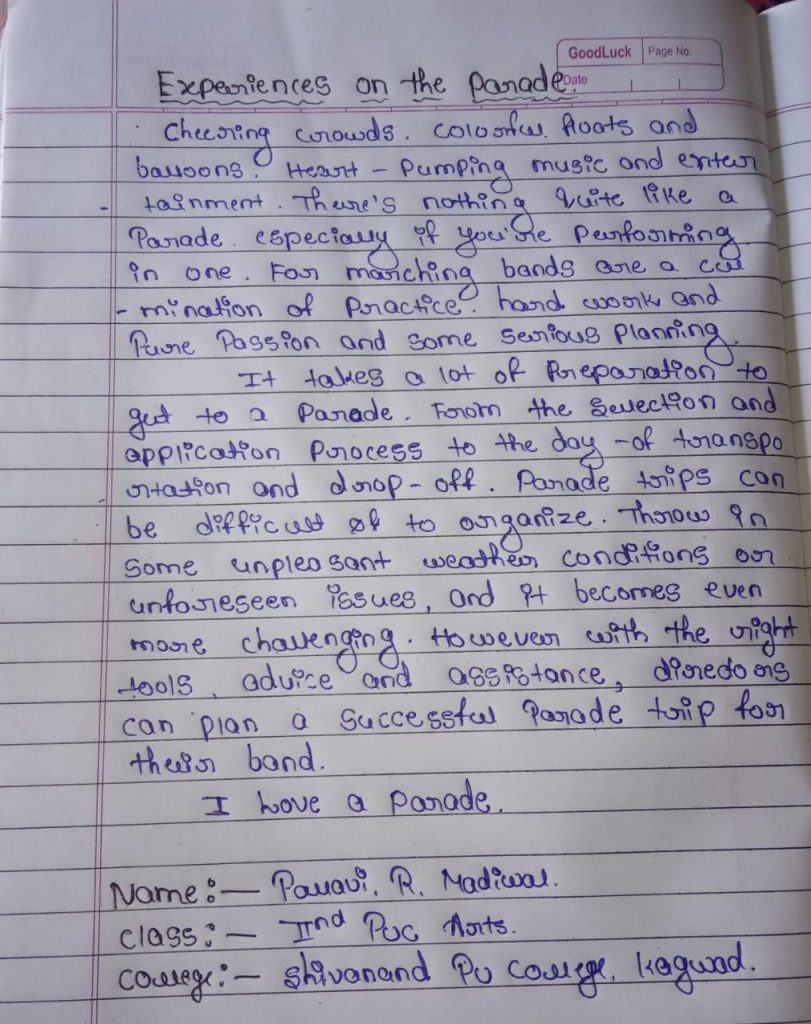 GoodLuck Page No.
Date
Experiences on the Parade.
Cheering crowds. Colorful floats and
balloons. Heart - Pumping music and enter
- tainment. There's nothing quite like a
Parade. especially if you're Performing
in one. For marching bands are a cul
- mination of Practice. hard work and
Pure Passion and some serious Planning.
It takes a lot of Preparation to
get to a Parade. From the Selection and
application Process to the day -of transpo
rtation and drop-off. Parade trips can
be difficult to organize. Throw in
some unpleasant weather conditions oor
unforeseen issues, and it becomes even
more challenging. However with the right
tools, advice and assistance, diredoors
can plan a successful Parade trip foor
their band.
I Love a Parade.
Name:- Pallavi. R. Madiwal.
Class:- IInd Puc Arts.
College:- Shivanand Pu College, Kagwad.